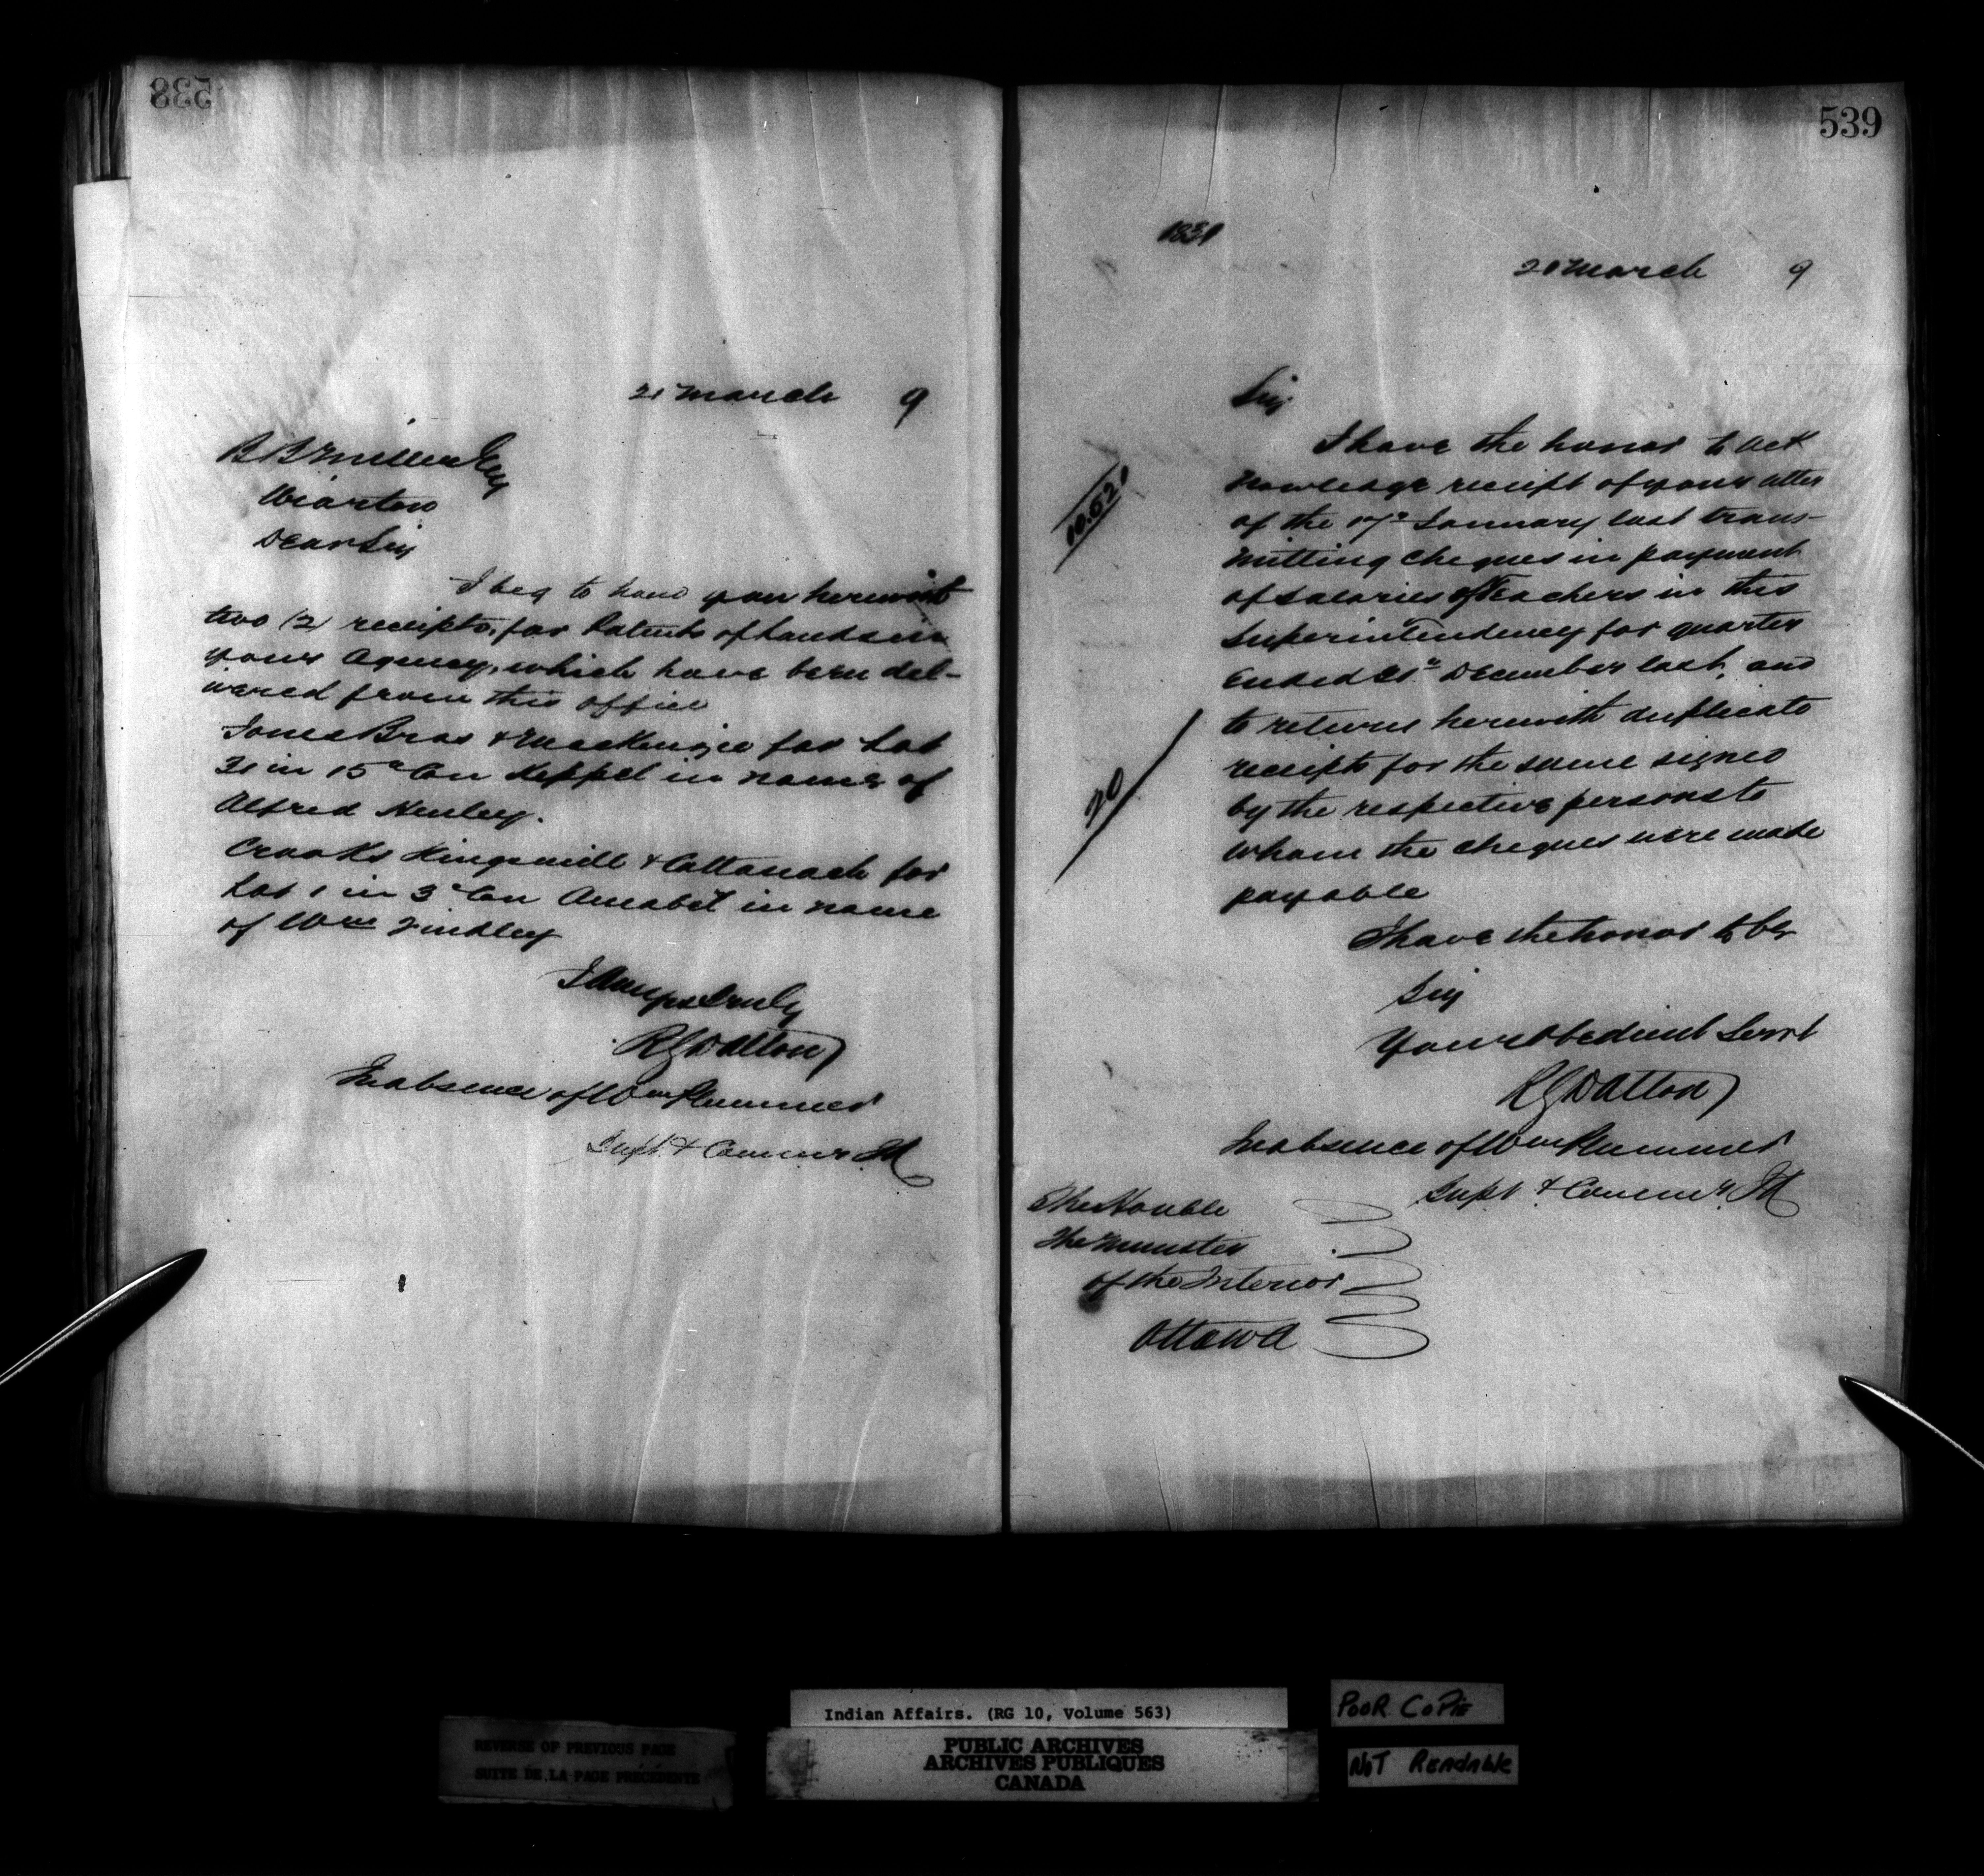 538
21 March 9
B B Miller Esq
Wiarton
Dear Sir
I beg to hand you herewith
two (2) receipts, for Patents of Lands in
your Agency, which have been del-
ivered from this office
Jones Bros & MacKenzie for Lot
31 in 15th Con Keppel in name of
Alfred Henley.
Crooks Kingsmill & Cattanach for
Lot 1 in 3d Con Amabel in name
of Wm Findley
I Am yrs truly
R G Dalton
In absence of Wm Plummer
Supt. & Commr. IA
539
1831
20 March 9
Sir
10.521
I have the honor to ack
nowledge receipt of your letter
of the 17th January last trans-
mitting cheques in payment
of salaries of Teachers in this
Superintendency for quarter
Ended 31st December last, and
20
to return herewith duplicate
receipts for the same signed
by the respective persons to
whom the cheques were made
payable
I have the honor to be
Sir
Your Obedient Servt
R G Dalton
In absence of Wm Plummer
Supt & Commr. IA
The Honble
The Minister
of the Interior
Ottawa
Indian Affairs. (RG 10, Volume 563)
PUBLIC ARCHIVES
ARCHIVES PUBLIQUES
CANADA
POOR COPIE
NOT READABLE
REVERSE OF PREVIOUS PAGE
SUITE DE LA PAGE PRÉCÉDENTE